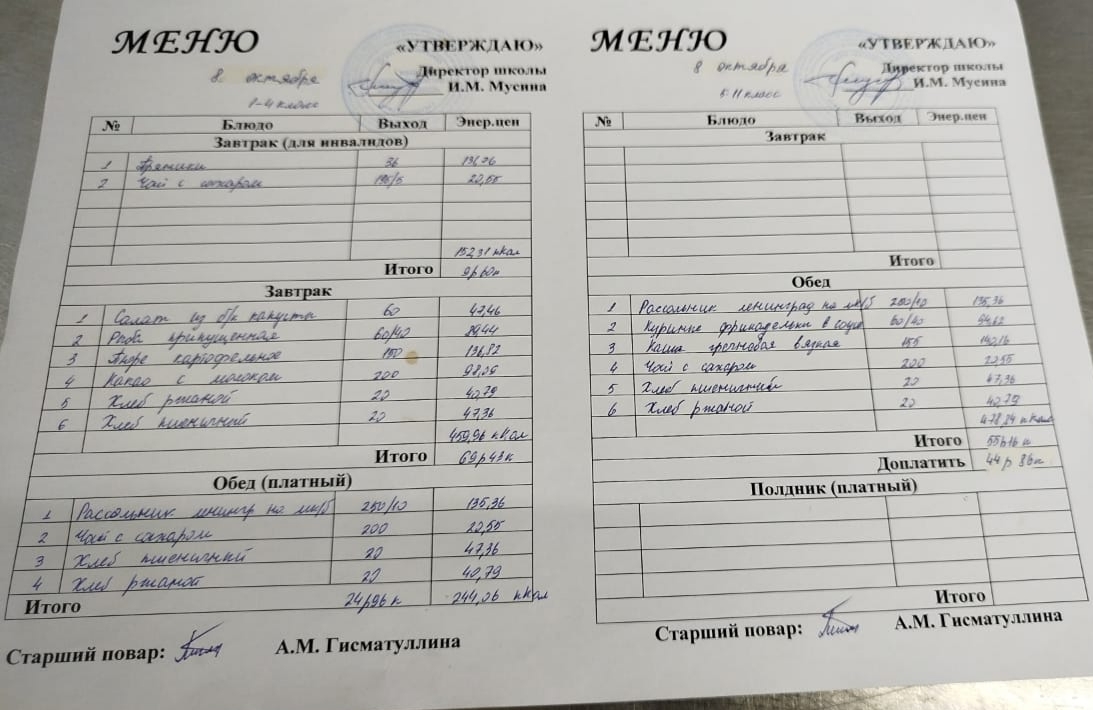 МЕНЮ
«УТВЕРЖДАЮ»
8 октября
Директор школы
И.М. Мусина
1-4 класс
№ Блюдо Выход Энер.цен
Завтрак (для инвалидов)
1 Пряники 36
2 Чай с сахаром 195/5 22,55
Итого 9р60к
Завтрак
1 Салат из б/к капусты 60 47,46
2 Рыба припущенная 60/40
3 Пюре картофельное 150 136,82
4 Какао с молоком 200
5 Хлеб ржаной 20 40,79
6 Хлеб пшеничный 20 47,36
459,96 кКал
Итого 69р43к
Обед (платный)
1 Рассольник ленингр на мк/б 250/10 135,36
2 Чай с сахаром 200 22,55
3 Хлеб пшеничный 20 47,36
4 Хлеб ржаной 20 40,79
Итого 24р96к 244,06 кКал
Старший повар: А.М. Гисматуллина
МЕНЮ
«УТВЕРЖДАЮ»
8 октября
Директор школы
И.М. Мусина
5-11 класс
№ Блюдо Выход Энер.цен
Завтрак
Итого
Обед
1 Рассольник ленинград на мк/б 250/10 135,36
2 Куриные фрикадельки в соусе 60/40
3 Каша гречневая вязкая 155
4 Чай с сахаром 200 22,55
5 Хлеб пшеничный 20 47,36
6 Хлеб ржаной 20 40,79
Итого 55р16к
Доплатить 44р 86к
Полдник (платный)
Итого
Старший повар: А.М. Гисматуллина